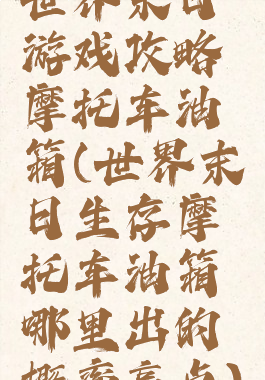 世界末日
游戏攻略
摩托车油
箱(世界末
日生存摩
托车油箱
哪里出的
概率高点)